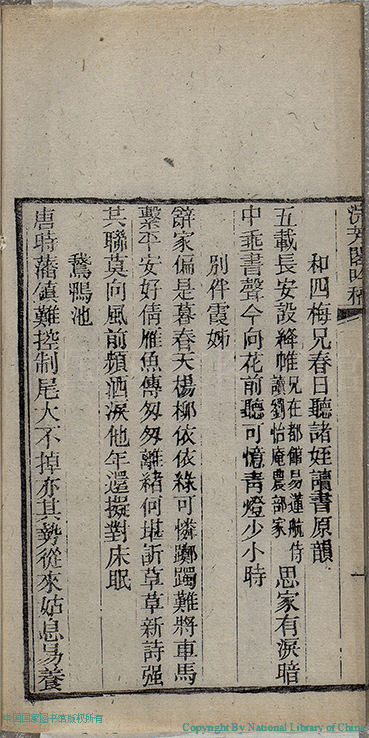 和四梅兄春日聽諸姪讀書原韻
五載長安設絳帷兄在都館易蓮航侍讀劉怡庵農部家思家有淚暗
中垂書聲今向花前聽可憶青燈少小時
別伴霞姊
辭家偏是暮春天楊柳依依綠可憐躑躅難將車馬
繫平安好倩雁魚傳匆匆離緒何堪訴草草新詩强
共聯莫向風前頻洒淚他年還擬對床眠
鵞鴨池
唐時藩鎮難控制尾大不掉亦其勢從來姑息易養
中国国家图书馆版权所有
Copyright By National Library of China